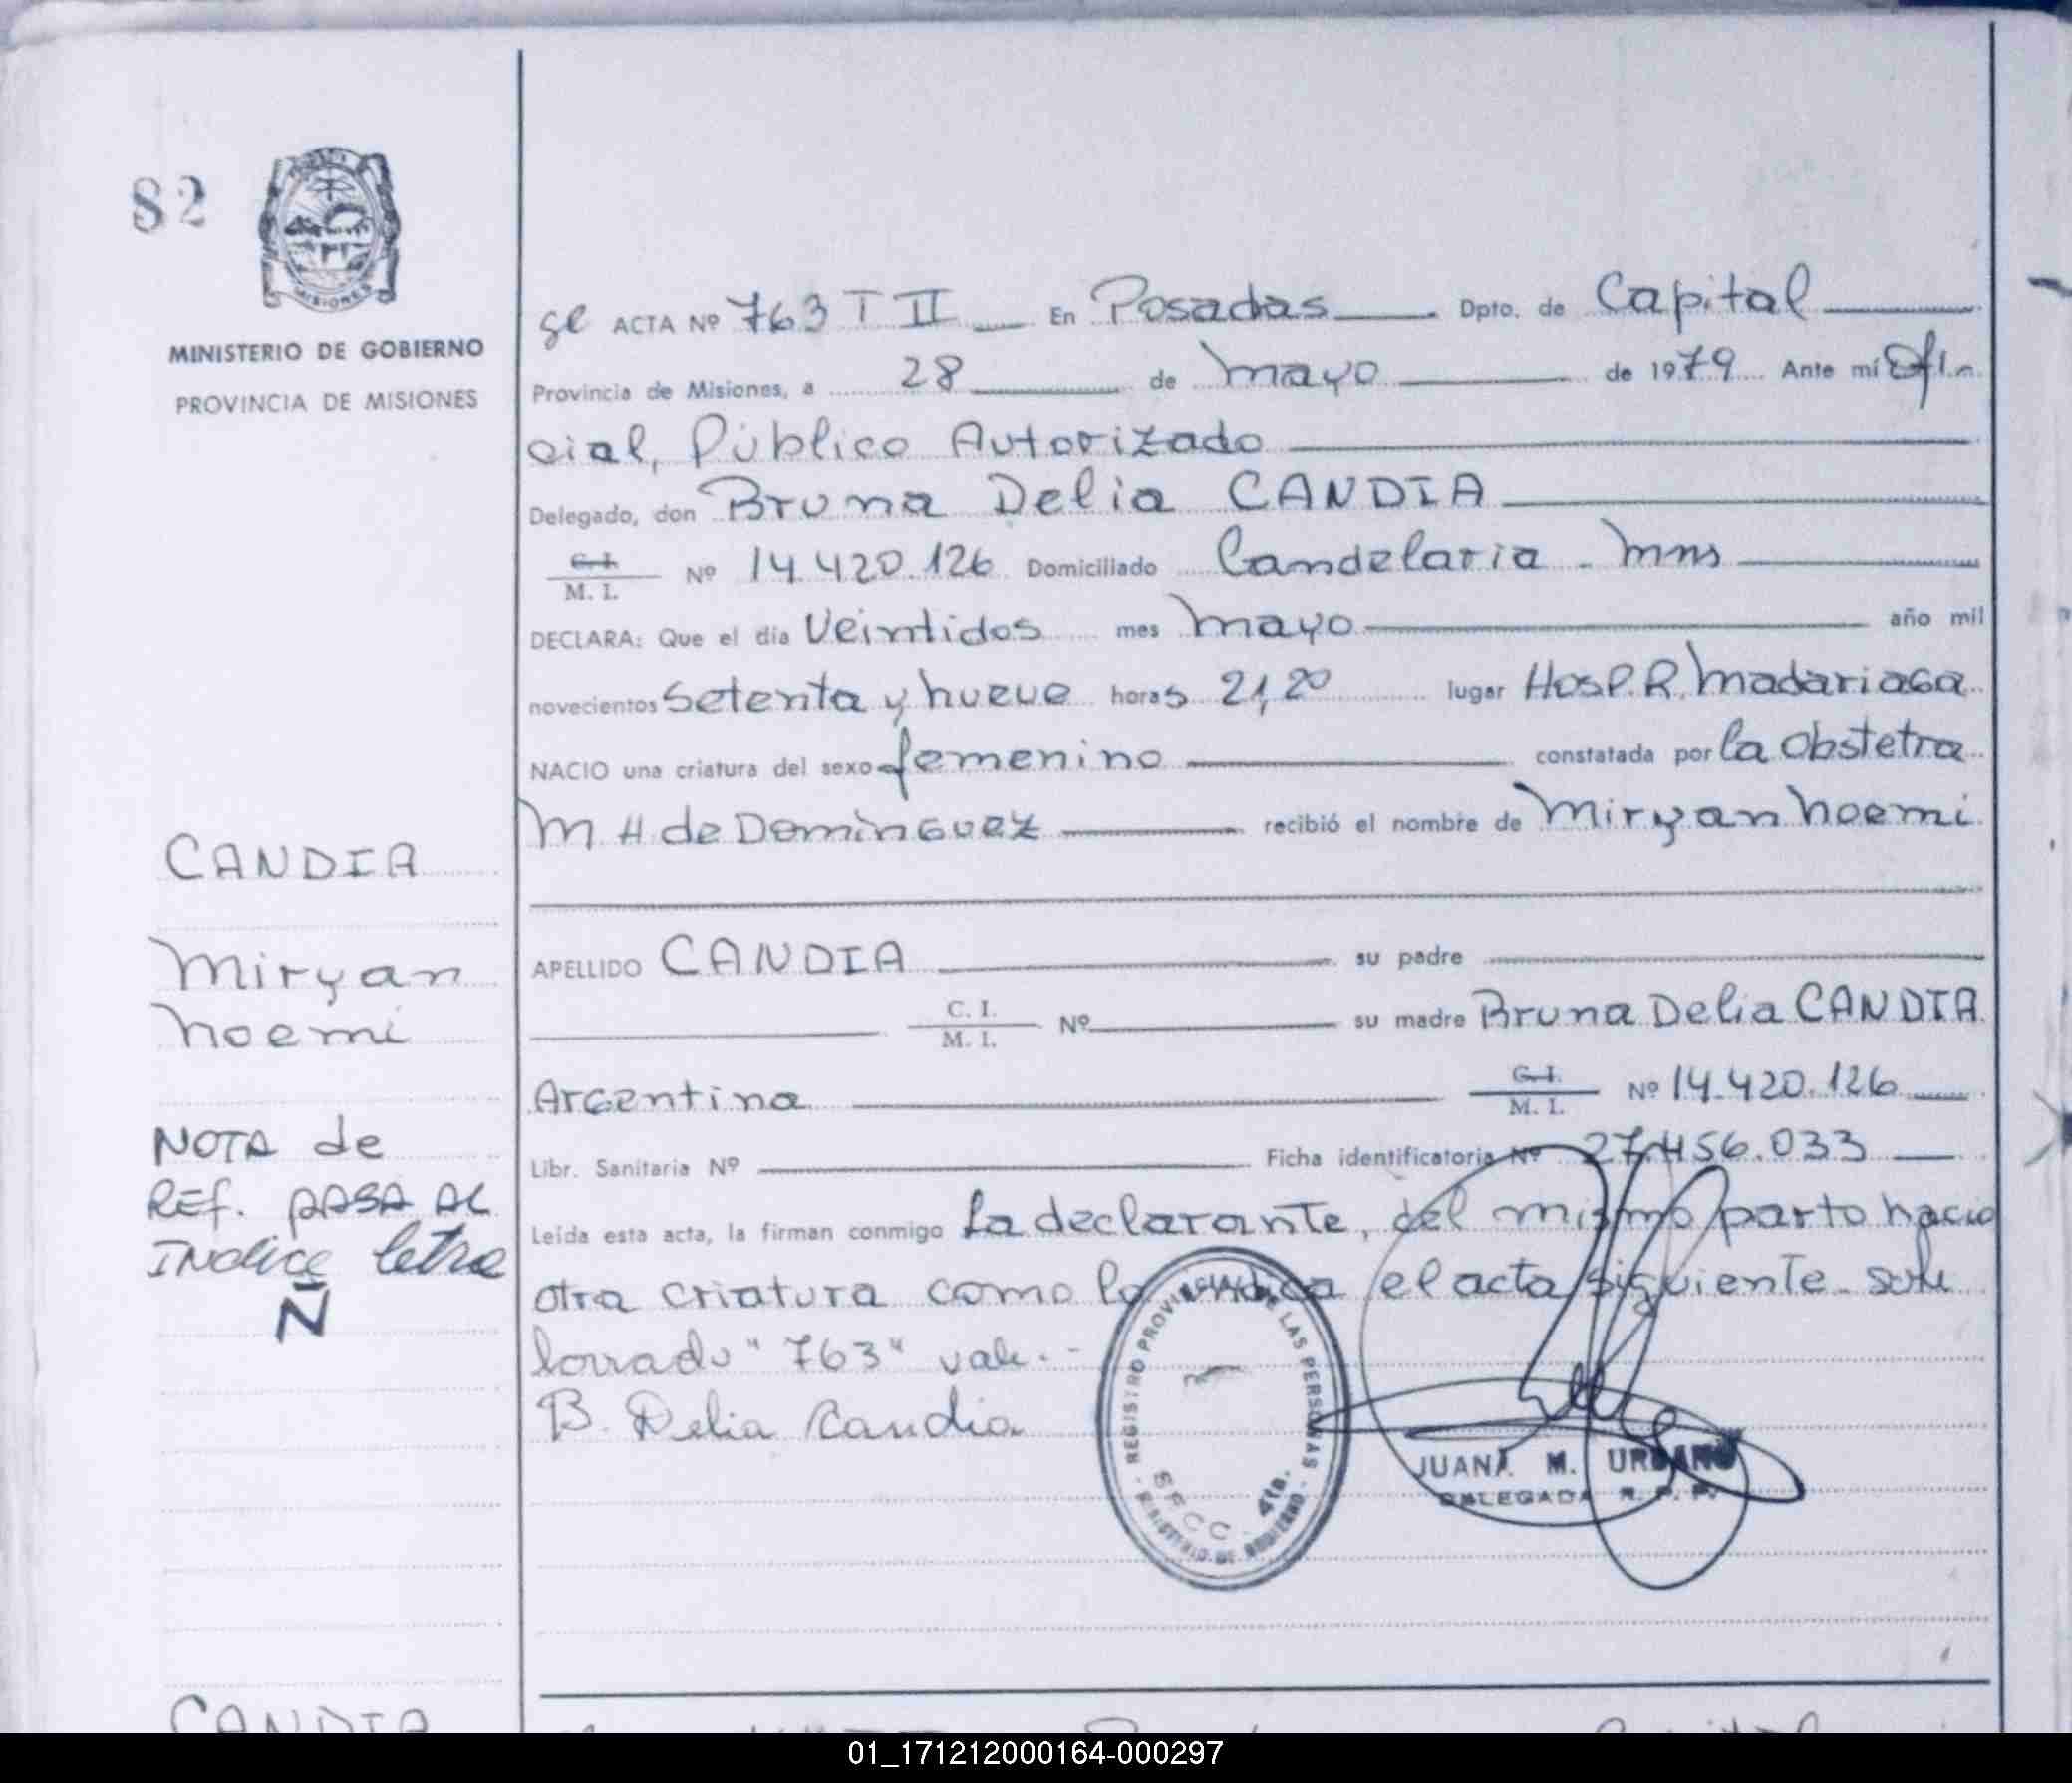 82
MISIONES
MINISTERIO DE GOBIERNO
PROVINCIA DE MISIONES
CANDIA
Miryan
Noemi
NOTA de
REF. PASA AL
INdice letra
Ñ
CANDIA
ACTA Nº 763 T II En Posadas Dpto. de Capital
Provincia de Misiones, a 28 de mayo de 1979 Ante mí Ofi
cial, Público Autorizado
Delegado, don Bruna Delia CANDIA
C. I.
M. I. Nº 14.420.126 Domiciliado Candelaria - Mns
DECLARA: Que el día Veintidos mes mayo año mil
novecientos Setenta y nueve horas 21,20 lugar Hosp. R. Madariaga
NACIO una criatura del sexo femenino constatada por la Obstetra
M H de Dominguez recibió el nombre de Miryan Noemi
APELLIDO CANDIA su padre
C. I.
M. I. Nº su madre Bruna Delia CANDIA
Argentina C. I.
M. I. Nº 14.420.126
Libr. Sanitaria Nº Ficha identificatoria Nº 27.456.033
Leída esta acta, la firman conmigo La declarante, del mismo parto nacio
otra criatura como lo indica el acta siguiente. sobre
borrado "763" vale.-
B. Delia Candia
REGISTRO PROVINCIAL DE LAS PERSONAS
SECC. 4ta.
MINISTERIO DE GOBIERNO
JUANA M. URBANO
DELEGADA R. P. P.
01_171212000164-000297